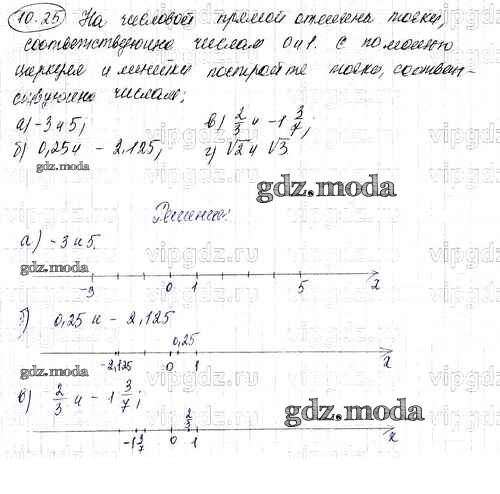 10.25 На числовой прямой отмечены точки,
соответствующие числам 0 и 1. С помощью
циркуля и линейки постройте точки, соответ-
ствующие числам;
а) -3 и 5; в) 2/3 и -1 3/7;
б) 0,25 и -2,125; г) √2 и √3
gdz.moda
gdz.moda
Решение:
а) -3 и 5.
gdz.moda
-3 0 1 5 x
б) 0,25 и -2,125
0,25
gdz.moda
-2,125 0 1 x
в) 2/3 и -1 3/7;
gdz.moda
2/3
-1 3/7 0 1 x
vipgdz.ru